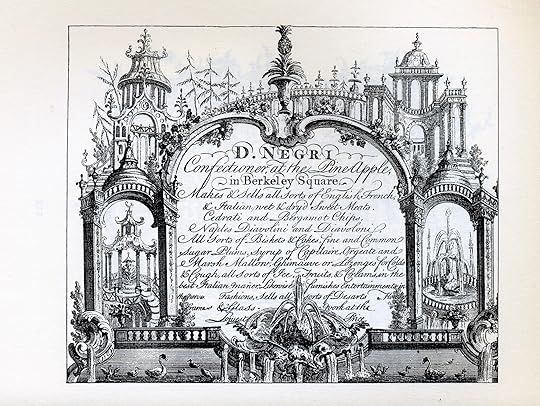 D. NEGRI
Confectioner, at the Pine-Apple,
in Berkeley Square.
Makes & Sells all Sorts of English, French,
& Italian, wet & dry'd Sweet Meats.
Cedrati and Bergamot Chips.
Naples Diavolini and Diavoloni.
All Sorts of Biskets & Cakes, fine and Common
Sugar Plums, Syrup of Capilaire, Orgeate and
Marsh Mallow, Ghimauve or Lozenges for Colds
& Cough, all Sorts of Ice, Fruits, & Creams, in the
best Italian manner. Likewise furnishes Entertainments in
Fashions, Sells all Sorts of Desarts
& Glass work at the
Lowest Price